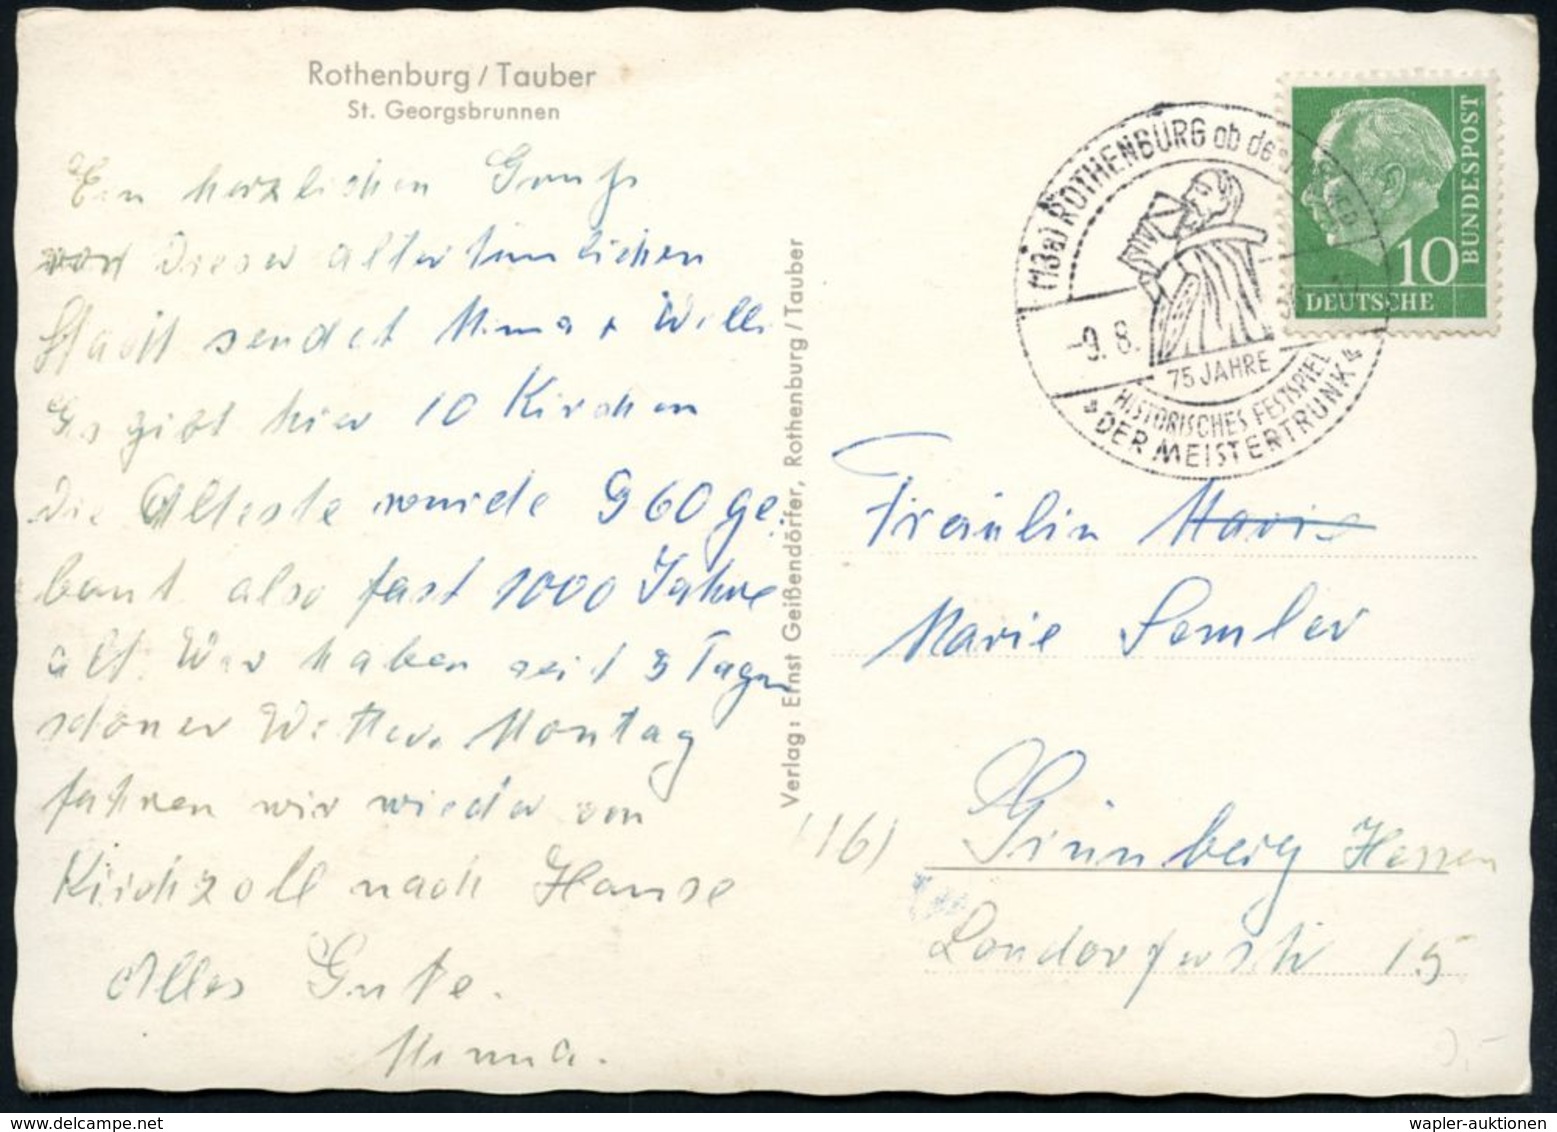 Rothenburg / Tauber
St. Georgsbrunnen
Ein herzlichen Gruß
von dieser altertümlichen
Stadt sendet Minna + Willi
Es gibt hier 10 Kirchen
die Älteste wurde 960 ge.
baut also fast 1000 Jahre
alt. Wir haben seit 3 Tagen
schöner Wetter. Montag
fahren wir wieder von
Kirchzell nach Hause
Alles Gute.
Minna.
Verlag: Ernst Geißendörfer, Rothenburg/Tauber
(13a) ROTHENBURG ob der
-9. 8.
75 JAHRE
HISTORISCHES FESTSPIEL
"DER MEISTERTRUNK"
10
DEUTSCHE
BUNDESPOST
Fräulin Marie
Marie Semler
(16) Grünberg Hessen
Londorferstr 15
wapler-auktionen